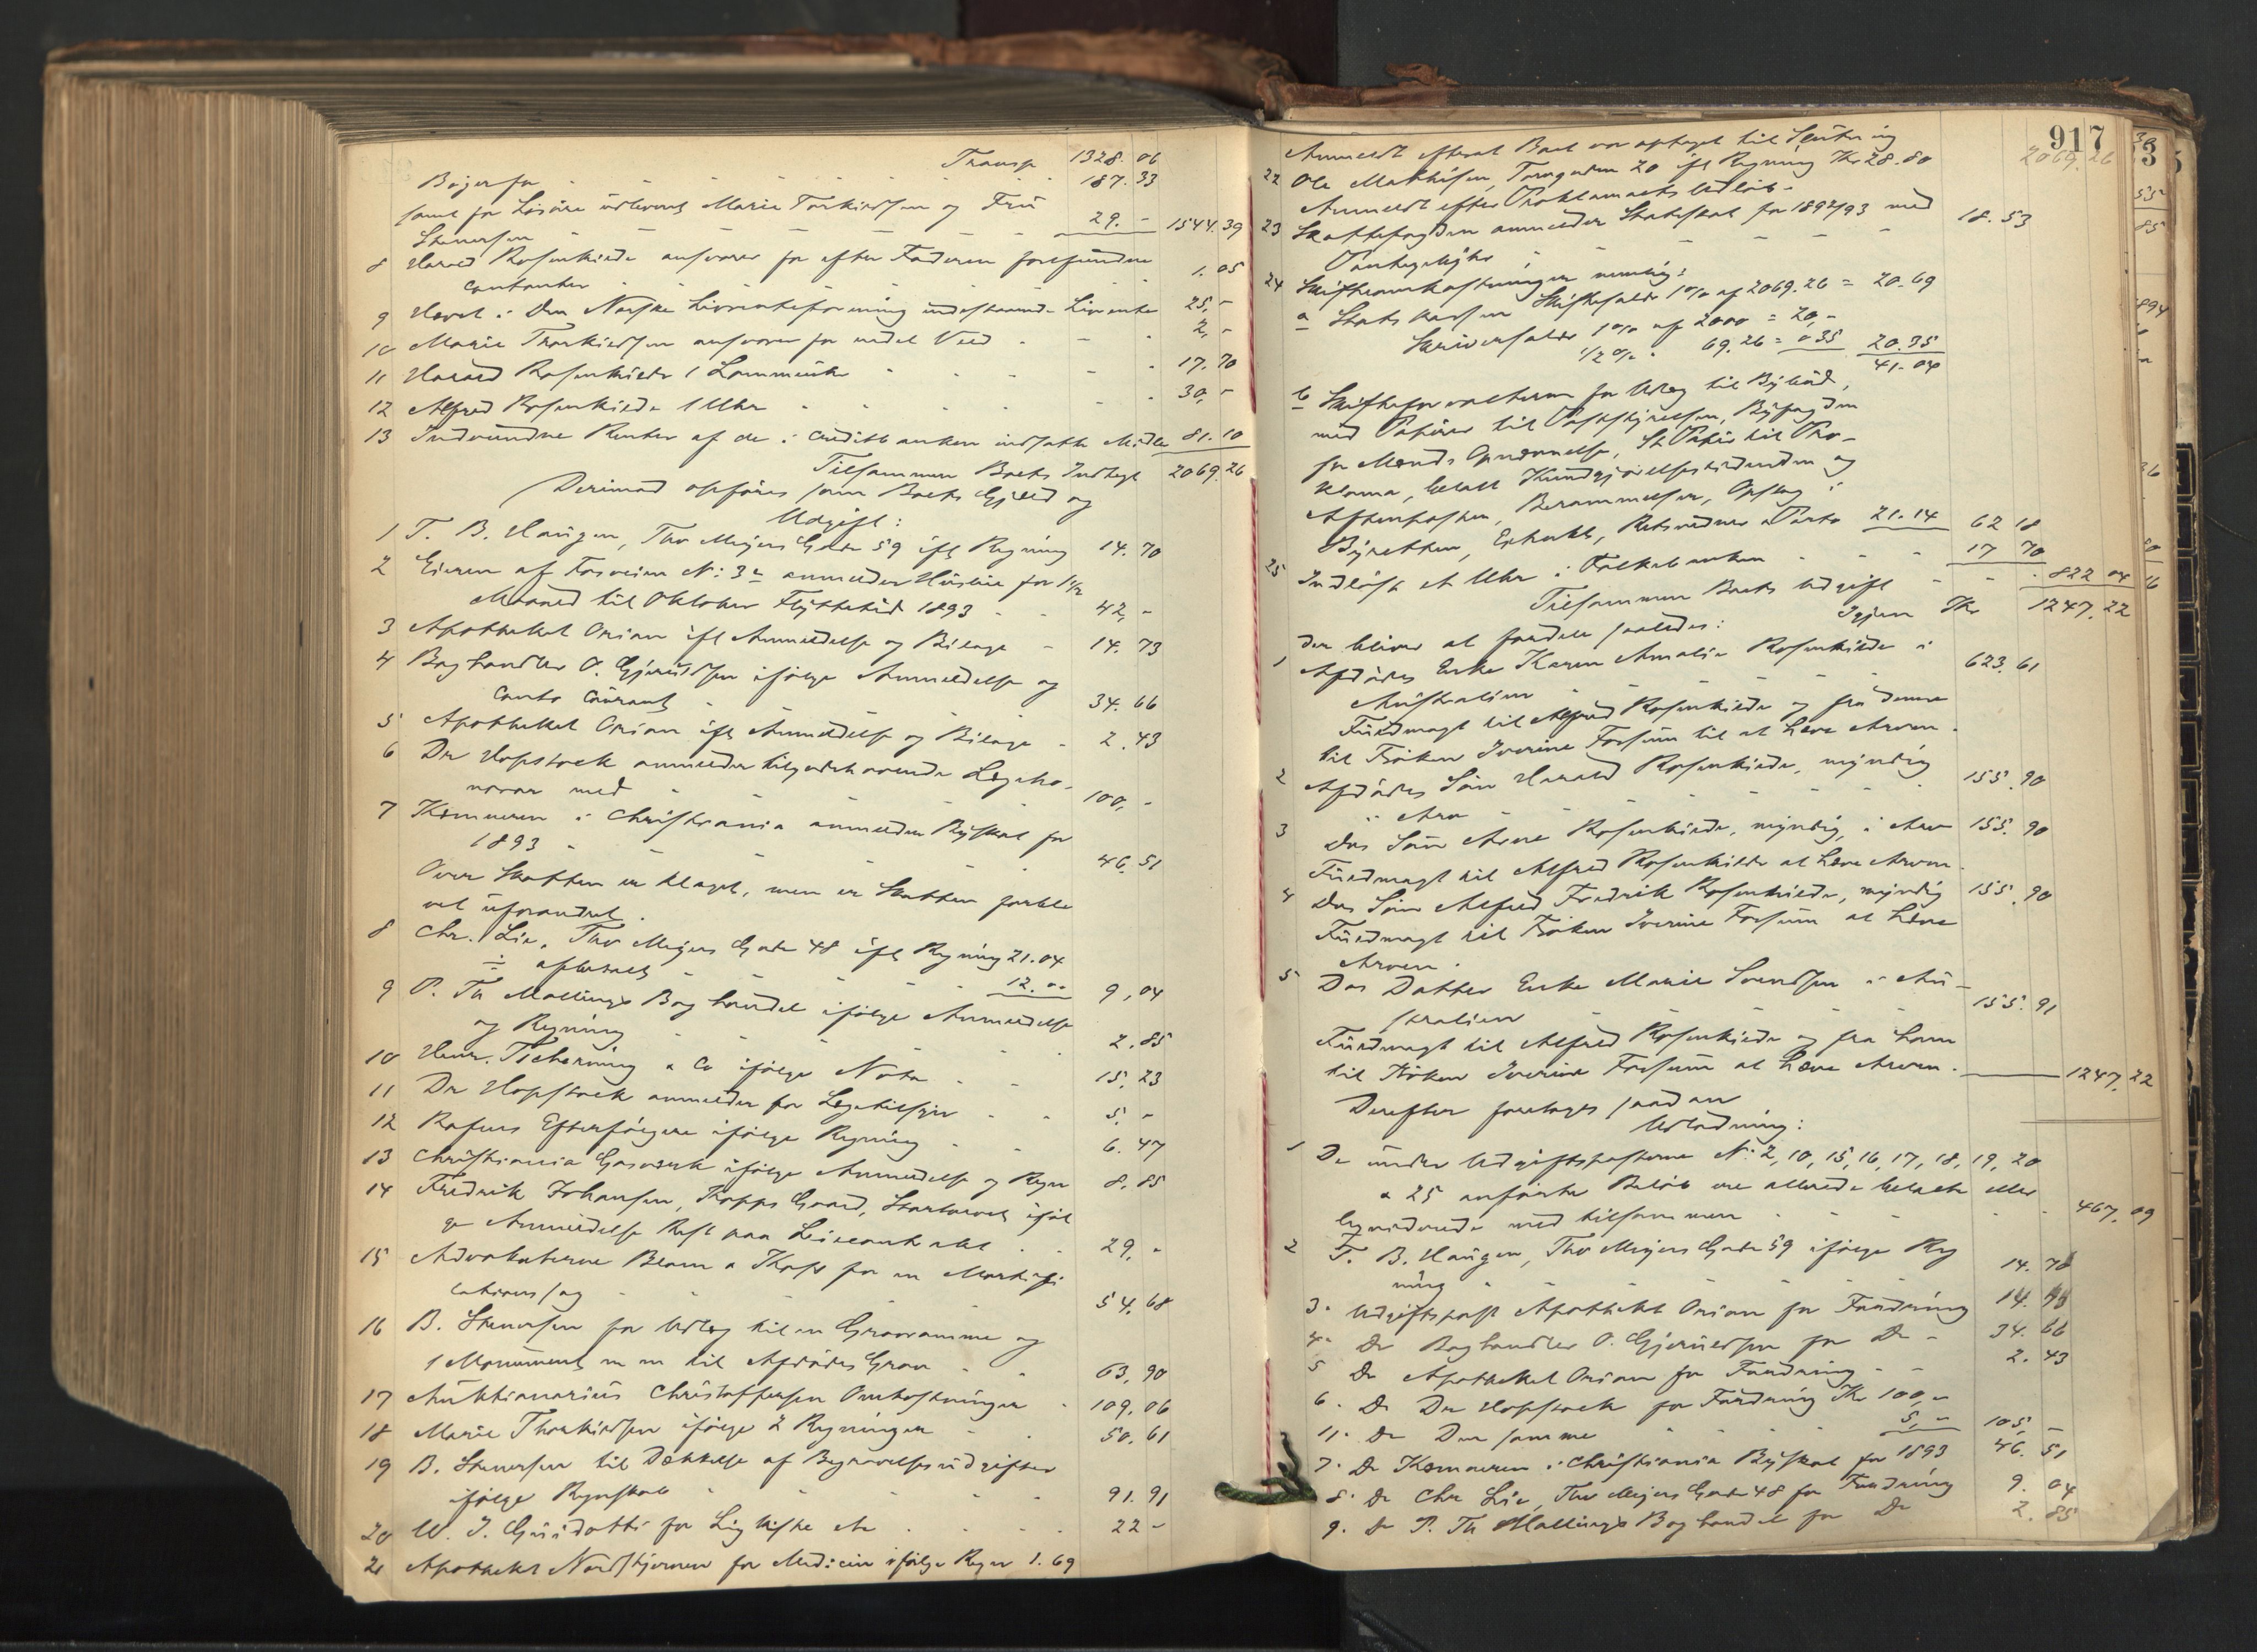 Transp 1328.06
Bøger for 187.33
samt for Løsøre udleveret Marie Torkildsen og Frü
Stenersen 29.- 1544.39
8 Harald Rosenkilde ansvarer for efter Faderen forefundne
contanter 1.05
9 Hævet i Den Norske Livrenteforening indestaaende Livrente 25,-
10 Marie Thorkildsen ansvarer for nedel Ved 2,-
11 Harald Rosenkilde 1 Lommeuhr 17.70
12 Alfred Rosenkilde 1 Uhr 30,-
13 Indvundne Renter af de i Creditbanken indsatte Midler 81.10
Tilsammen Boets Indtægt 2069.26
Derimod opføres som Boets Gjæld og
Udgift:
1 T. B. Haugen, Thv Meyers Gade 59 ifl Regning 14.70
2 Eieren af Fosveien N: 3a anmelder Husleie for 1 1/2
Maaned til Oktober Flyttetid 1893 42,-
3 Apotheket Orion ifl Anmeldelse og Bilage 14.73
4 Boghandler O. Gjerüldsen ifølge Anmeldelse og
Conto Courant 34.66
5 Apotheket Orion ifl Anmeldelse og Bilage 2.43
6 Dr Hopstock anmelder tilgodehavende Lægeho-
norar med 100,-
7 Kæmneren i Christiania anmelder Byskat for
1893 46.51
Over Skatten er klaget, men er Skatten forble
vet uforandret.
8 Chr. Lie, Thv Meyers Gade 48 ifl Regning 21.04
÷ afbetalt 12.00 9,04
9 P. Th Mallings Boghandel ifølge Anmeldelse
og Regning 2.85
10 Henr. Tscherning & Co ifølge Nota 15.23
11 Dr Hopstock anmelder for Lægetilsyn 5,-
12 Rafens Efterfølgere ifølge Regning 6.47
13 Christiania Gasværk ifølge Anmeldelse og Regn 8.85
14 Fredrik Johansen, Kopps Gaard, Storhovet iføl
ge Anmeldelse Rest paa 29,-
15 Advokaterne Blom & Kopf for en Mortifi
cations sag 54.68
16 B. Stenersen for Udlæg til en Gravramme og
1 Monument m m til Afdødes Grav 63,90
17 Auktionarius Christoffersen Omkostninger 109,06
18 Marie Thorkildsen ifølge 2 Regninger 50.61
19 B. Stenersen til Dækkelse af Begravelsesudgifter
ifølge Regnskab 91.91
20 W. J. Guidotti for Ligkiste etc 22-
21 Apotheket Nordstjernen for Medicin ifølge Regn 1.69
917
Anmeldt efterat Boet var optaget til Slutning 2069.26
22 Ole Mathisen, Torvgaden 20 ifl Regning Kr 28.80
Anmeldt efter Proklamaets Udløb-
23 Skattefogden anmelder Statsskat for 1892/93 med
Pantegebyhr 18.53
24 Skifteomkostninger nemlig:
a Statskassen Skiftesalær 1% af 2069.26 = 20.69
Skriversalær 1% af 2000 = 20,-
1/2% " 69.26 = 0 35 20.35
41.04
b Skifteforvalteren for Udlæg til Bybud,
med Papirer til Politistyrelsen, Byfogden
for Mænds Opnævnelse, St Papir til Pro-
klama, betalt Kundgjørelsestidenden og
Aftenposten, Berammelser, Opslag i
Byretten, Extrakt, Retsvidner & Porto 21.14 62 18
25 Indløst et Uhr i Folkebanken 17 70
Tilsammen Boets Udgift 822 04
Igjen Kr 1247.22
der bliver at fordele saaledes:
1 Afdødes Enke Karen Amalie Rosenkilde i
Australien 623.61
Fuldmagt til Alfred Rosenkilde og fra denne
til Frøken Iverine Fossum til at hæve Arven.
2 Afdødes Søn Harald Rosenkilde, myndig
i Arv 155.90
3 Das Søn Arne Rosenkilde, myndig, i Arv 155.90
Fuldmagt til Alfred Rosenkilde at hæve Arven.
4 Das Søn Alfred Fredrik Rosenkilde, myndig 155.90
Fuldmagt til Frøken Iverine Fossum at hæve
Arven.
5 Das Datter Enke Marie Svendsen i Au-
stralien 155.91
Fuldmagt til Alfred Rosenkilde og fra ham
til Frøken Iverine Fossum at hæve Arven. 1247.22
Derefter foretages saadan
Udlodning:
1 De under Udgiftsposterne N: 2, 10, 15, 16, 17, 18, 19, 20
& 25 anførte Beløb ere allerede betalte eller
liqviderede med tilsammen 467.09
2 T. B. Haugen, Thv Meyers Gade 59 ifølge Reg
ning 14.70
3. Udgiftspost Apotheket Orion for Fordring 14.
4. Do Boghandler O. Gjerüldsen for Do 34.66
5 Do Apotheket Orion for Fordring 2.43
6. Do Dr Hopstock for Fordring Kr 100,-
11. Do Den samme 5,- 105,-
7. Do Kæmneren i Christiania Byskat for 1893 46.51
8. Do Chr Lie, Thv Meyers Gade 48 for Fordring 9.04
9. Do P. Th Mallings Boghandel for Do 2.85